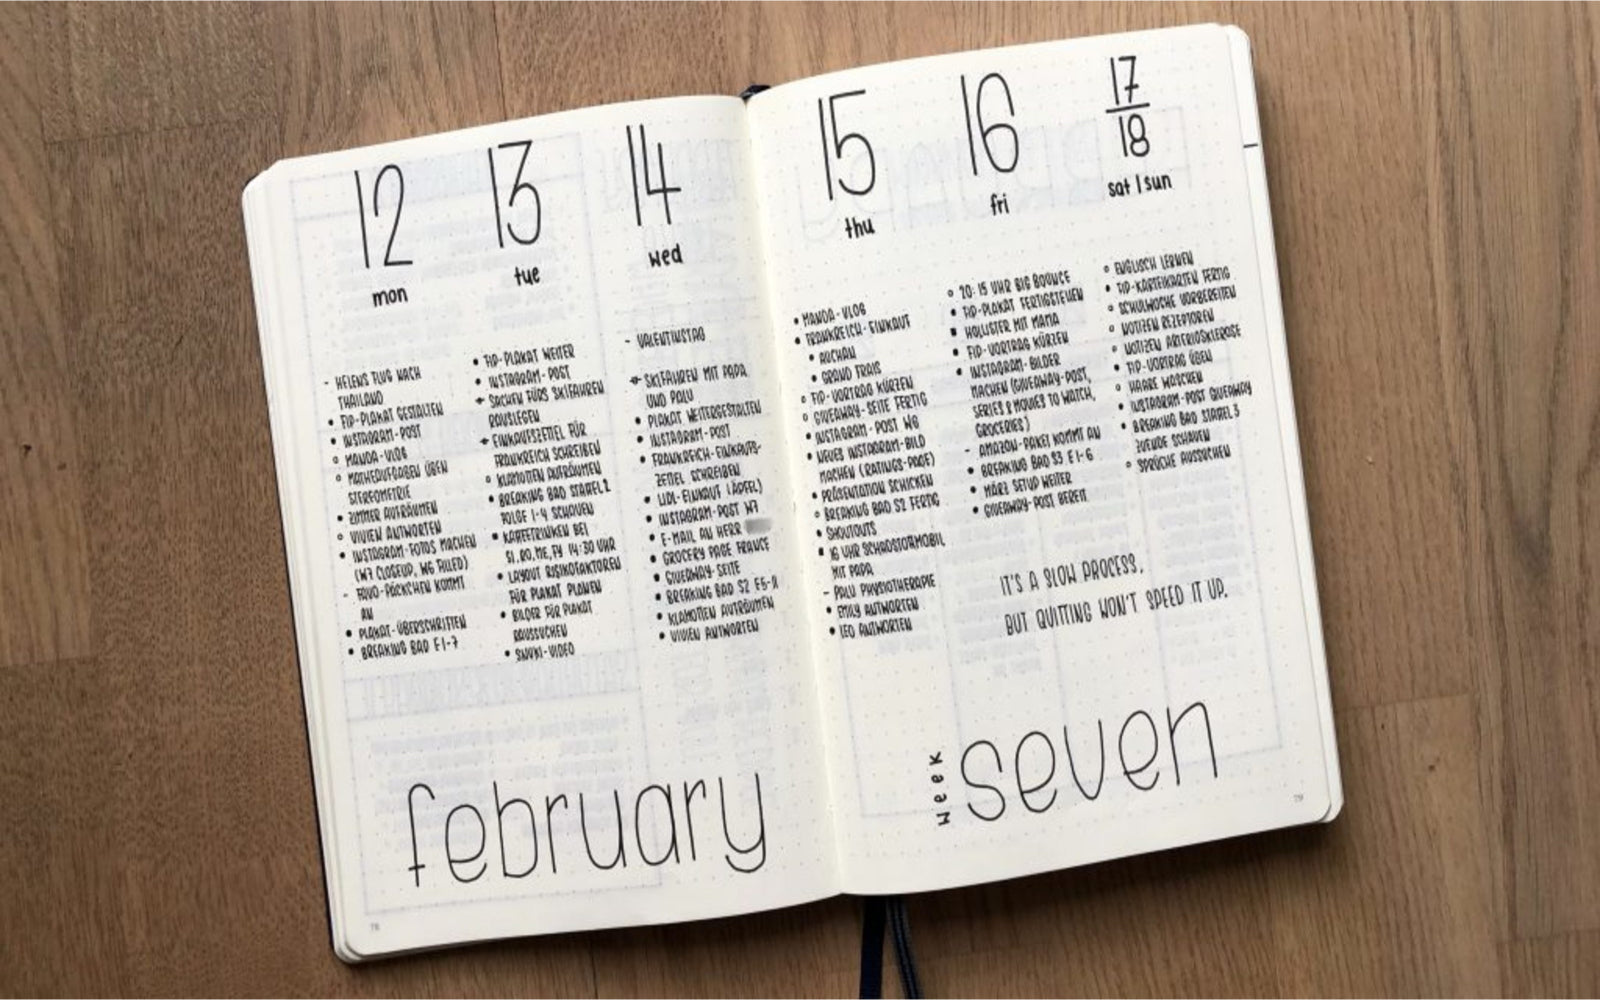 12
mon
- HELENS FLUG NACH
THAILAND
• FIP-PLAKAT GESTALTEN
• INSTAGRAM-POST
o MANDA-VLOG
o MATHEAUFGABEN ÜBEN
STEREOMETRIE
• ZIMMER AUFRÄUMEN
o VIVIEN ANTWORTEN
• INSTAGRAM-FOTOS MACHEN
(W7 CLOSEUP, W6 FILLED)
- FAVO-PÄCKCHEN KOMMT
AN
• PLAKAT-ÜBERSCHRIFTEN
• BREAKING BAD E1-7
13
tue
• FIP-PLAKAT WEITER
• INSTAGRAM-POST
• SACHEN FÜRS SKIFAHREN
RAUSLEGEN
• EINKAUFSZETTEL FÜR
FRANKREICH SCHREIBEN
o KLAMOTTEN AUFRÄUMEN
• BREAKING BAD STAFFEL 2
FOLGE 1-4 SCHAUEN
• KAFFEETRINKEN BEI
SI, RO, ME, FY 14:30 UHR
• LAYOUT RISIKOFAKTOREN
FÜR PLAKAT PLANEN
• BILDER FÜR PLAKAT
RAUSSUCHEN
• SNUKI-VIDEO
14
wed
- VALENTINSTAG
• SKIFAHREN MIT PAPA
UND PALU
• PLAKAT WEITERGESTALTEN
• INSTAGRAM-POST
• FRANKREICH-EINKAUFS-
ZETTEL SCHREIBEN
• LIDL-EINKAUF (ÄPFEL)
• INSTAGRAM-POST W7
• E-MAIL AN HERR
• GROCERY PAGE FRANCE
• GIVEAWAY-SEITE
• BREAKING BAD S2 E5-11
• KLAMOTTEN AUFRÄUMEN
• VIVIEN ANTWORTEN
february
78
15
thu
• MANDA-VLOG
• FRANKREICH-EINKAUF
• AUCHAN
• GRAND FRAIS
o FIP-VORTRAG KÜRZEN
o GIVEAWAY-SEITE FERTIG
• INSTAGRAM-POST W6
• NEUES INSTAGRAM-BILD
MACHEN (RATINGS-PAGE)
• PRÄSENTATION SCHICKEN
o BREAKING BAD S2 FERTIG
• SHOUTOUTS
• 16 UHR SCHADSTOFFMOBIL
MIT PAPA
- PALU PHYSIOTHERAPIE
• EMILY ANTWORTEN
• LEO ANTWORTEN
16
fri
o 20:15 UHR BIG BOUNCE
• FIP-PLAKAT FERTIGSTELLEN
• HOLLISTER MIT MAMA
• FIP-VORTRAG KÜRZEN
• INSTAGRAM-BILDER
MACHEN (GIVEAWAY-POST,
SERIES & MOVIES TO WATCH,
GROCERIES)
- AMAZON-PAKET KOMMT AN
• BREAKING BAD S3 E1-6
• MÄRZ SETUP WEITER
• GIVEAWAY-POST BEREIT
17
18
sat | sun
o ENGLISCH LERNEN
• FIP-KARTEIKARTEN FERTIG
o SCHULWOCHE VORBEREITEN
o NOTIZEN REZEPTOREN
o NOTIZEN ARTERIOSKLEROSE
• FIP-VORTRAG ÜBEN
o HAARE WASCHEN
• INSTAGRAM-POST GIVEAWAY
• BREAKING BAD STAFFEL 3
ZUENDE SCHAUEN
o SPRÜCHE AUSSUCHEN
IT'S A SLOW PROCESS,
BUT QUITTING WON'T SPEED IT UP.
week
seven
79